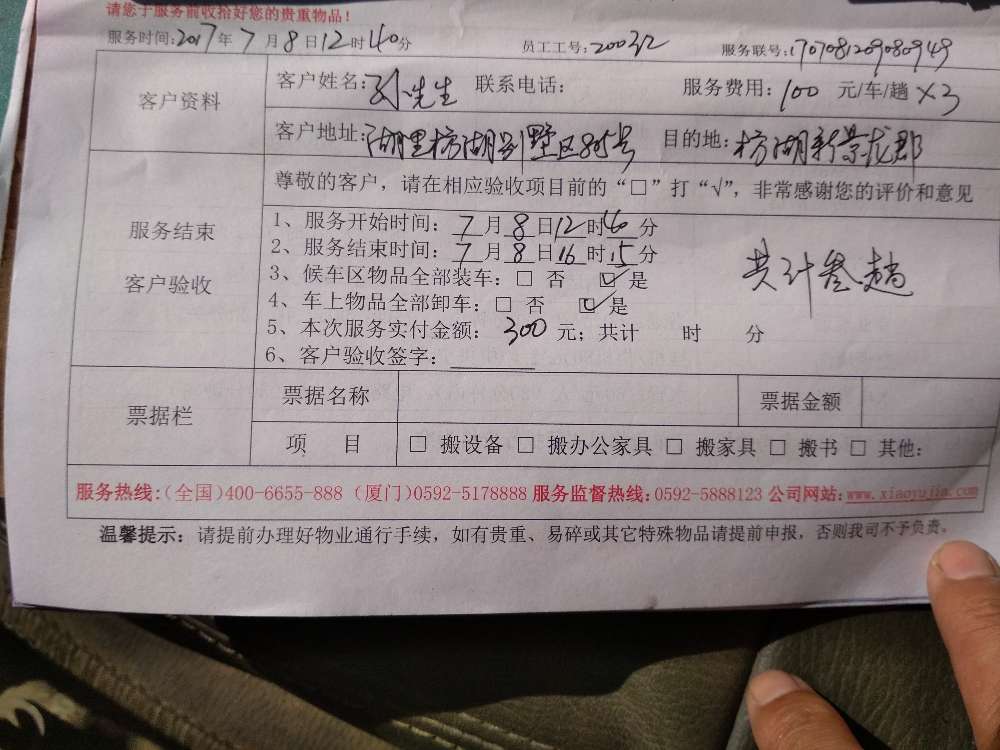 请您于服务前收拾好您的贵重物品！
服务时间：2017年7月8日12时40分 员工工号：200312 服务联号：1707081209080949
客户资料
客户姓名：孙先生 联系电话： 服务费用：100 元/车/趟 ×3
客户地址：湖里枋湖别墅区885号 目的地：枋湖新景龙郡
服务结束
客户验收
尊敬的客户，请在相应验收项目前的“□”打“√”，非常感谢您的评价和意见
1、服务开始时间：7月8日12时40分
2、服务结束时间：7月8日16时15分
3、候车区物品全部装车：□ 否 ☑是
4、车上物品全部卸车：□ 否 ☑是
5、本次服务实付金额：300元；共计 时 分
6、客户验收签字：
共计叁趟
票据栏
票据名称 票据金额
项 目 □ 搬设备 □ 搬办公家具 □ 搬家具 □ 搬书 □ 其他：
服务热线：（全国）400-6655-888（厦门）0592-5178888 服务监督热线：0592-5888123 公司网站：www.xiaoyujia.com
温馨提示：请提前办理好物业通行手续，如有贵重、易碎或其它特殊物品请提前申报，否则我司不予负责。